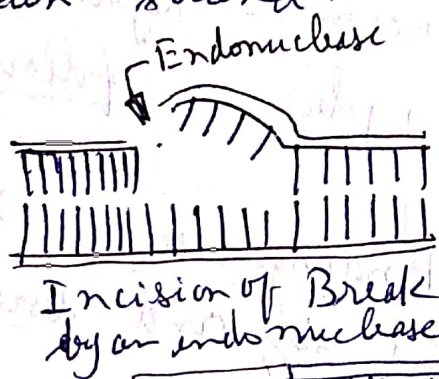 Endonuclease
Incision of Break
by an endonuclease